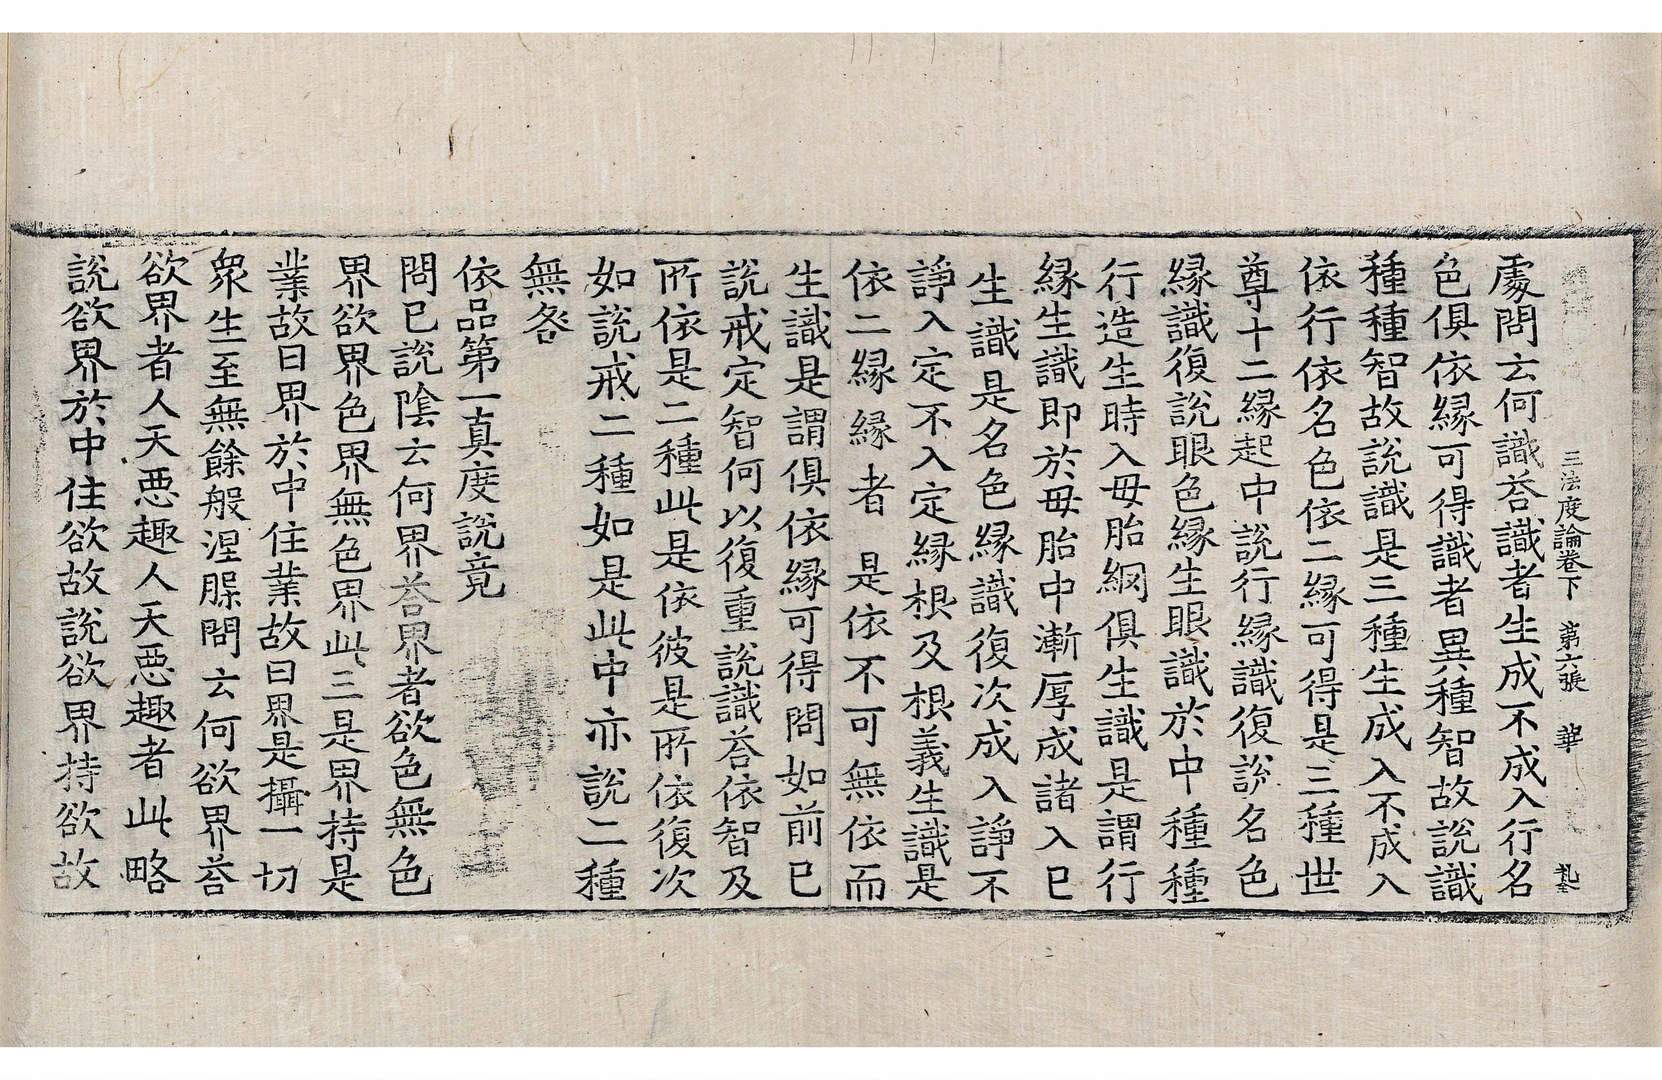 三法度論卷下　第六張　華　
處問云何識荅識者生成不成入行名
色俱依縁可得識者異種智故說識
種種智故說識是三種生成入不成入
依行依名色依二縁可得是三種世
尊十二縁起中說行縁識復說名色
縁識復說眼色縁生眼識於中種種
行造生時入母胎網俱生識是謂行
縁生識即於母胎中漸厚成諸入已
生識是名色縁識復次成入諍不
諍入定不入定縁根及根義生識是
依二縁縁者是依不可無依而
生識是謂俱依縁可得問如前已
說戒定智何以復重說識荅依智及
所依是二種此是依彼是所依復次
如說戒二種如是此中亦說二種
無咎
依品第一真度說竟
問已說陰云何界荅界者欲色無色
界欲界色界無色界此三是界持是
業故曰界於中住業故曰界是攝一切
衆生至無餘般涅槃問云何欲界荅
欲界者人天惡趣人天惡趣者此略
說欲界於中住欲故說欲界持欲故